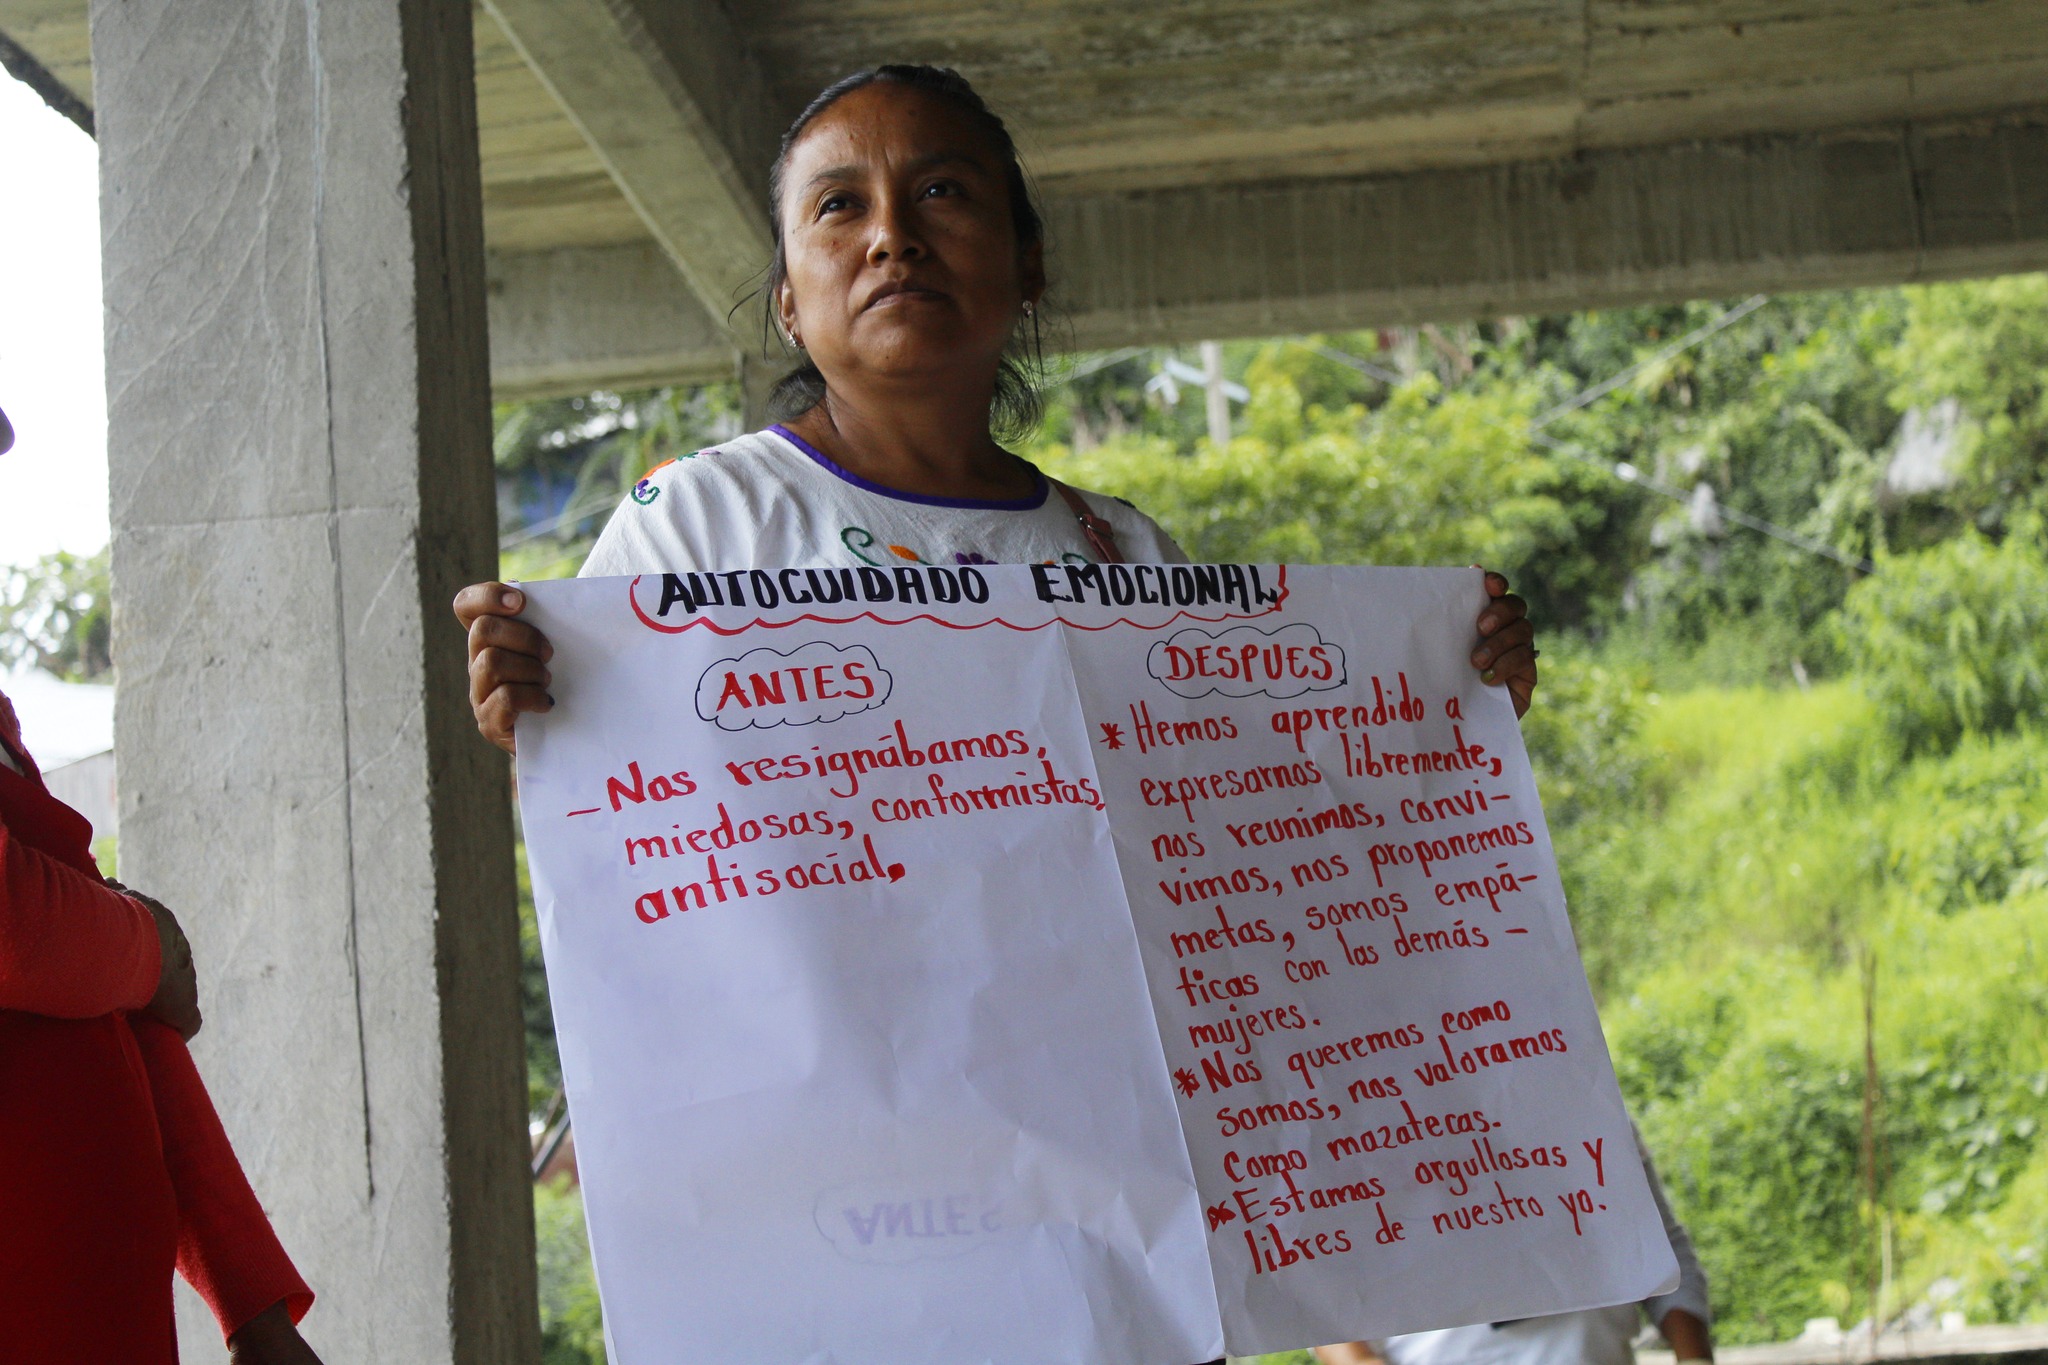 AUTOCUIDADO EMOCIONAL
ANTES
- Nos resignábamos,
miedosas, conformistas,
antisocial.
DESPUES
* Hemos aprendido a
expresarnos libremente,
nos reunimos, convi-
vimos, nos proponemos
metas, somos empá-
ticas con las demás -
mujeres.
* Nos queremos como
somos, nos valoramos
como mazatecas.
* Estamos orgullosas y
libres de nuestro yo!
ANTES